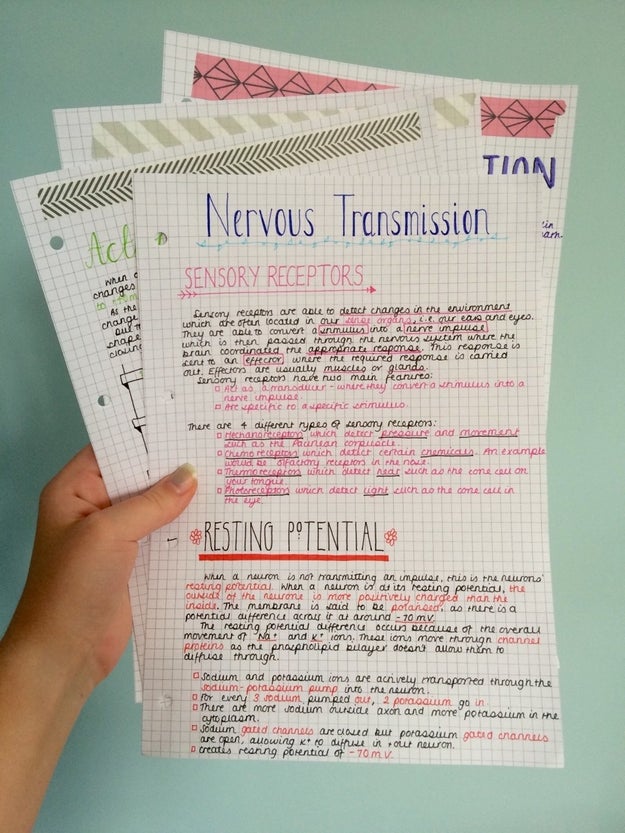 TION
in
arn.
Act
when
changes
to
As the
change
but
shape
closing
Nervous Transmission
SENSORY RECEPTORS
Sensory receptors are able to detect changes in the environment
which are often located in our sense organs, i.e. our ears and eyes.
They are able to convert a stimulus into a nerve impulse
which is then passed through the nervous system where the
brain coordinated the appropriate response. This response is
sent to an effector where the required response is carried
out. Effectors are usually muscles or glands.
Sensory receptors have two main features:
Act as a transducer - where they convert a stimulus into a
nerve impulse.
Are specific to a specific stimulus.
There are 4 different types of sensory receptors:
Mechanoreceptors which detect pressure and movement
such as the Pacinian corpuscle.
Chemoreceptors which detect certain chemicals. An example
would be olfactory receptors in the nose.
Thermoreceptors which detect heat such as the cone cell on
your tongue.
Photoreceptors which detect light such as the cone cell in
the eye.
RESTING POTENTIAL
When a neuron is not transmitting an impulse, this is the neurons'
resting potential. When a neuron is at its resting potential, the
outside of the neurone is more positively charged than the
inside. The membrane is said to be polarised, as there is a
potential difference across it at around -70 mV.
The resting potential difference occurs because of the overall
movement of Na+ and K+ ions. These ions move through channel
proteins as the phospholipid bilayer doesn't allow them to
diffuse through.
Sodium and potassium ions are actively transported through the
sodium-potassium pump into the neuron.
For every 3 sodium pumped out, 2 potassium go in.
There are more sodium outside axon and more potassium in the
cytoplasm.
Sodium gated channels are closed but potassium gated channels
are open, allowing K+ to diffuse in + out neuron.
creates resting potential of -70 mV.